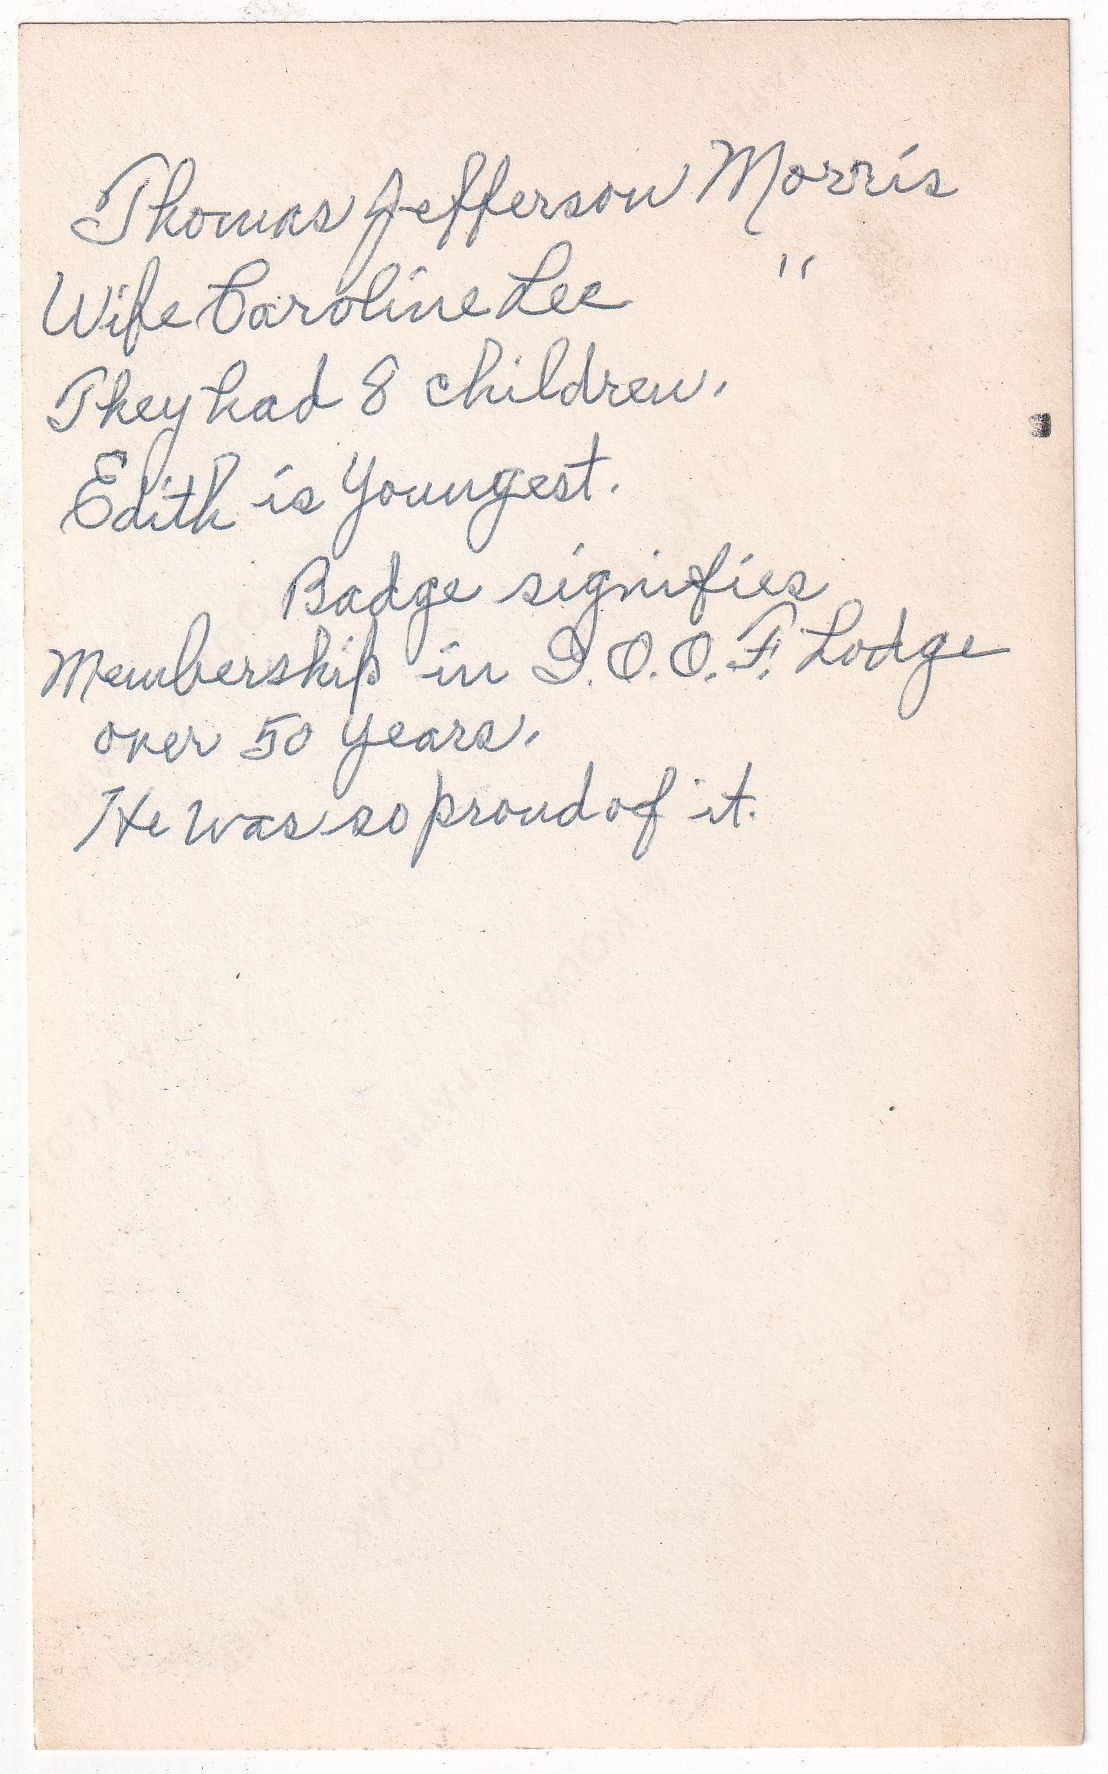 Thomas Jefferson Morris
Wife Caroline Lee "
They had 8 children.
Edith is Youngest.
Badge signifies
Membership in I.O.O.F. Lodge
over 50 years.
He was so proud of it.